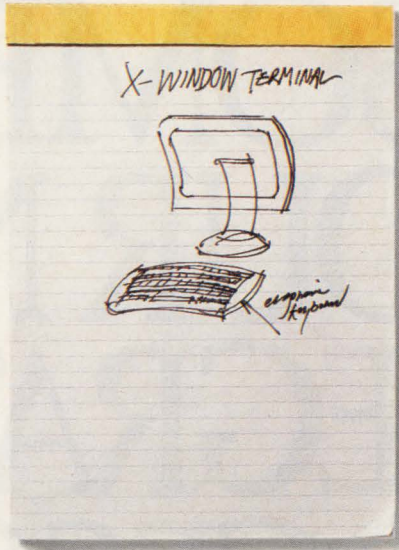 X-WINDOW TERMINAL
ergonomic
keyboard